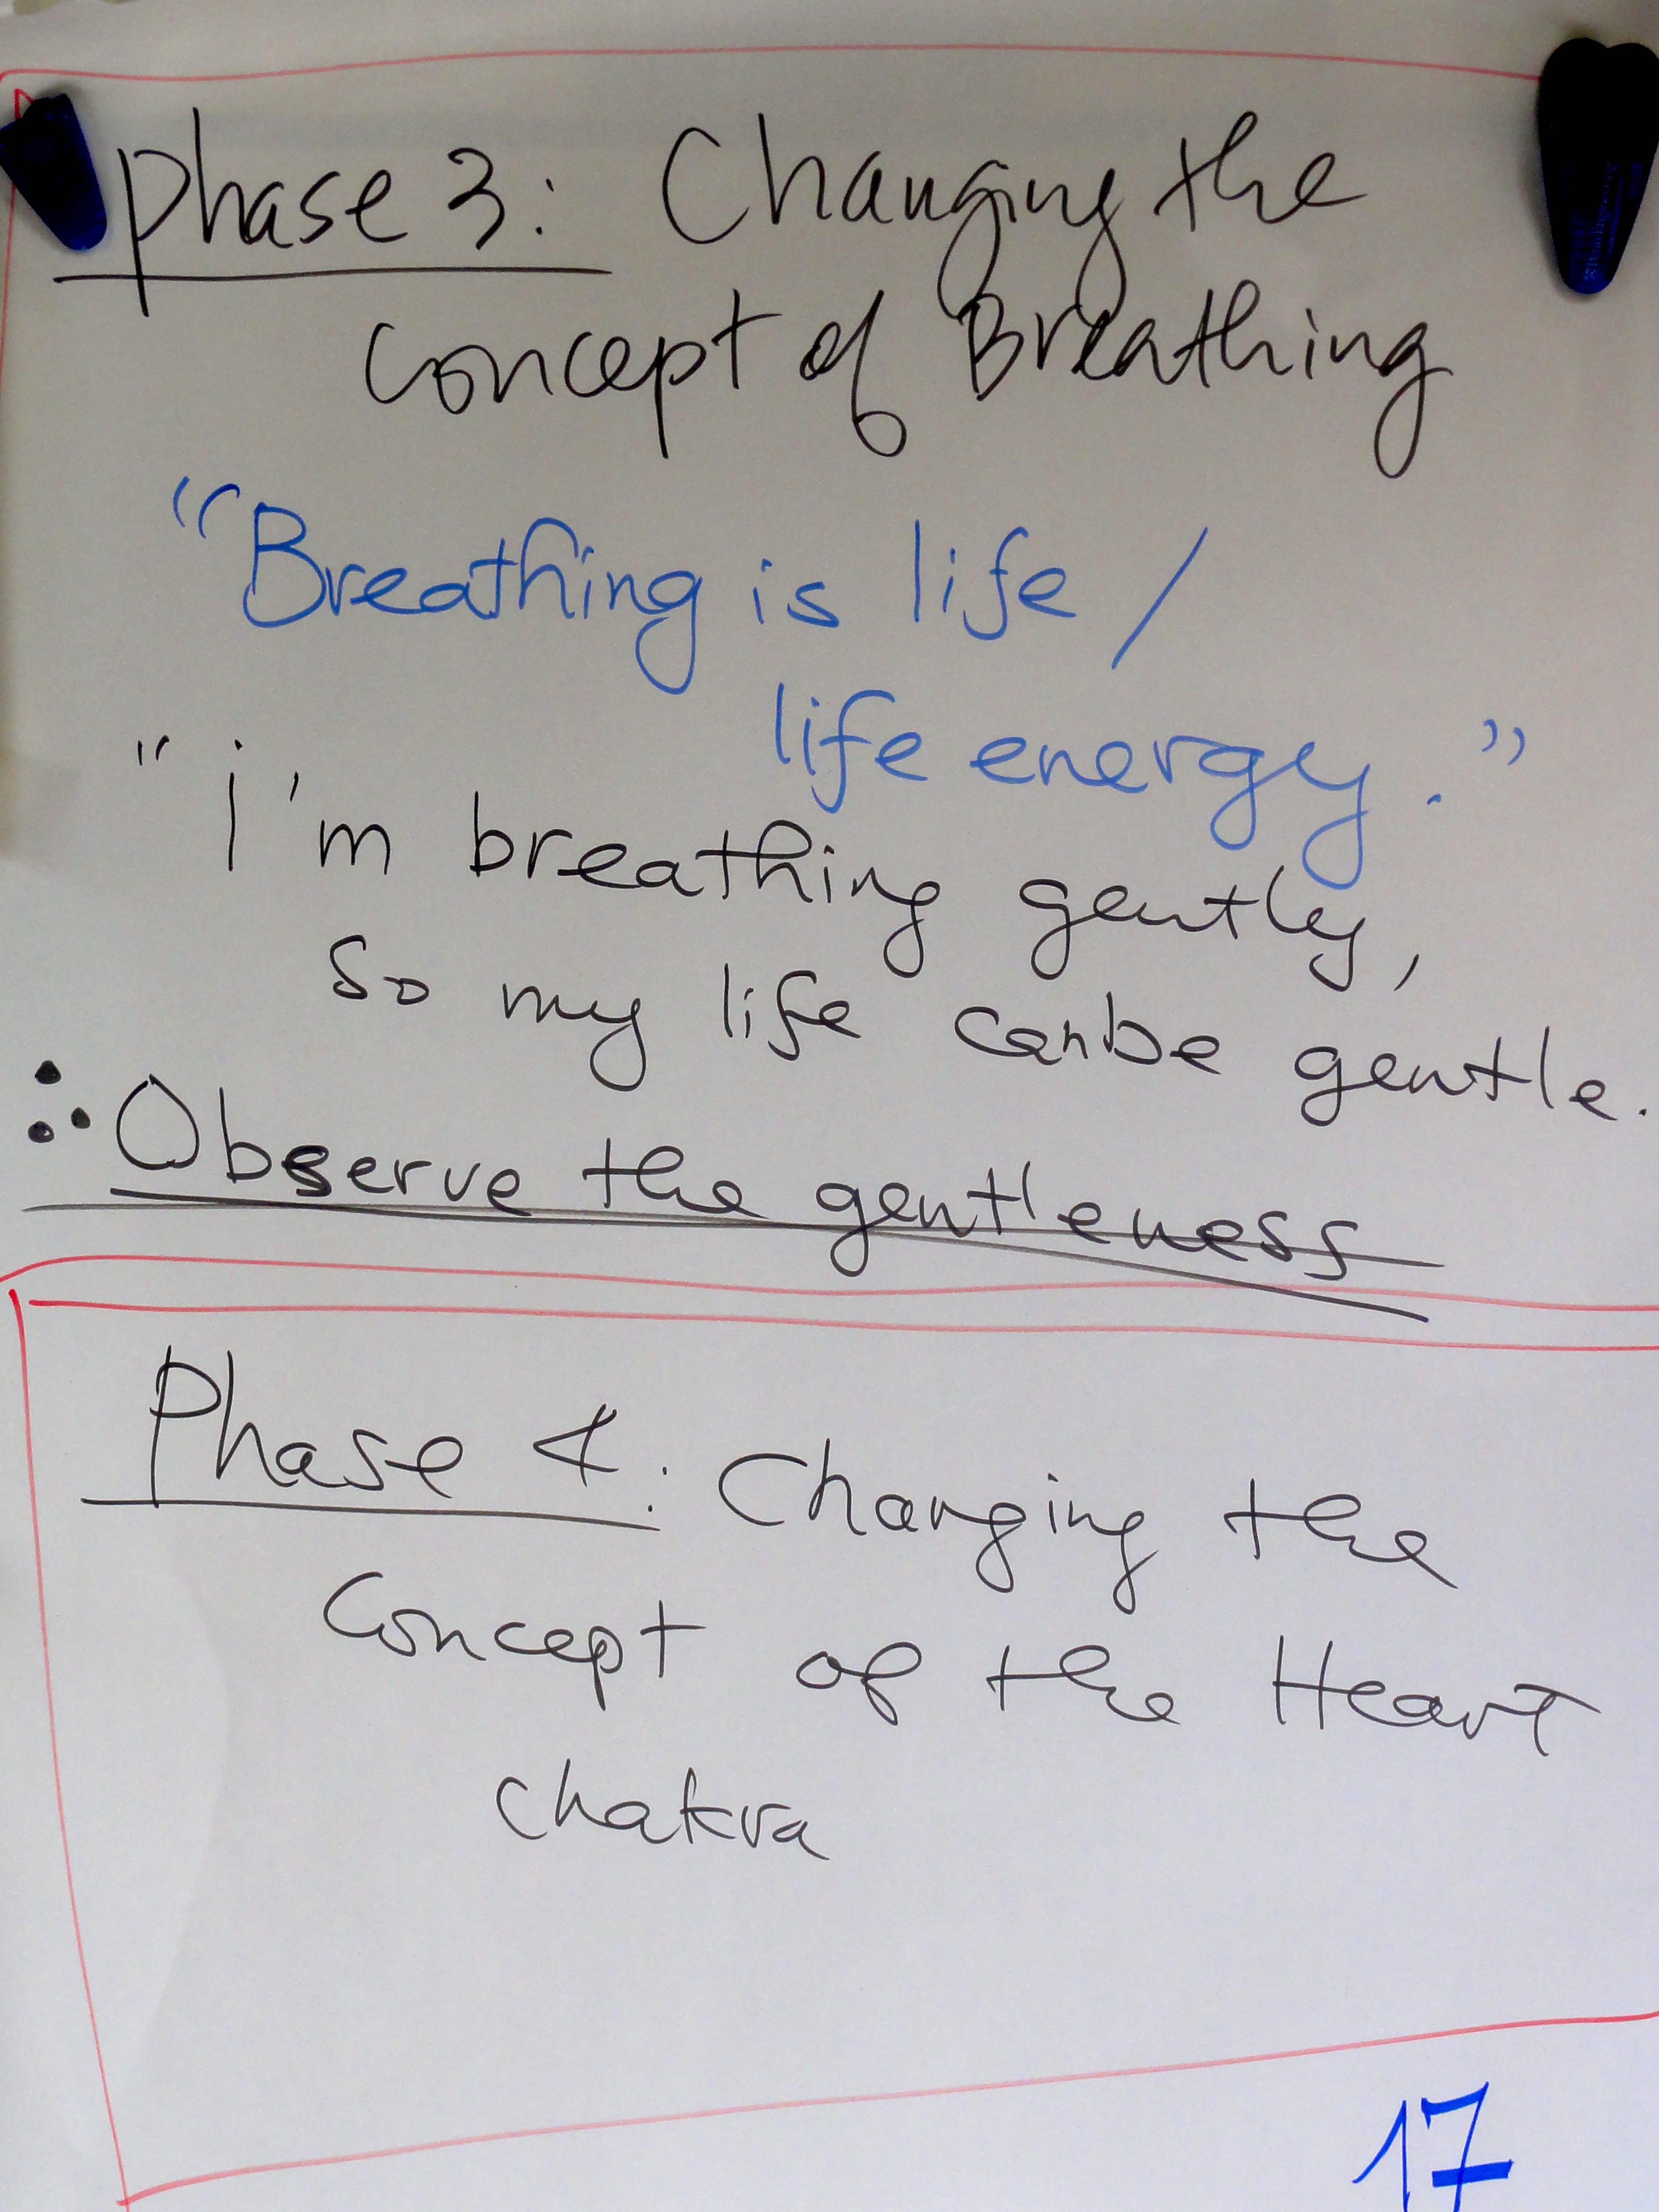 Phase 3: Changing the
concept of Breathing
"Breathing is life /
life energy."
"i'm breathing gently,
So my life can be gentle.
∴ Observe the gentleness
Phase 4: Changing the
Concept of the Heart
Chakra
17